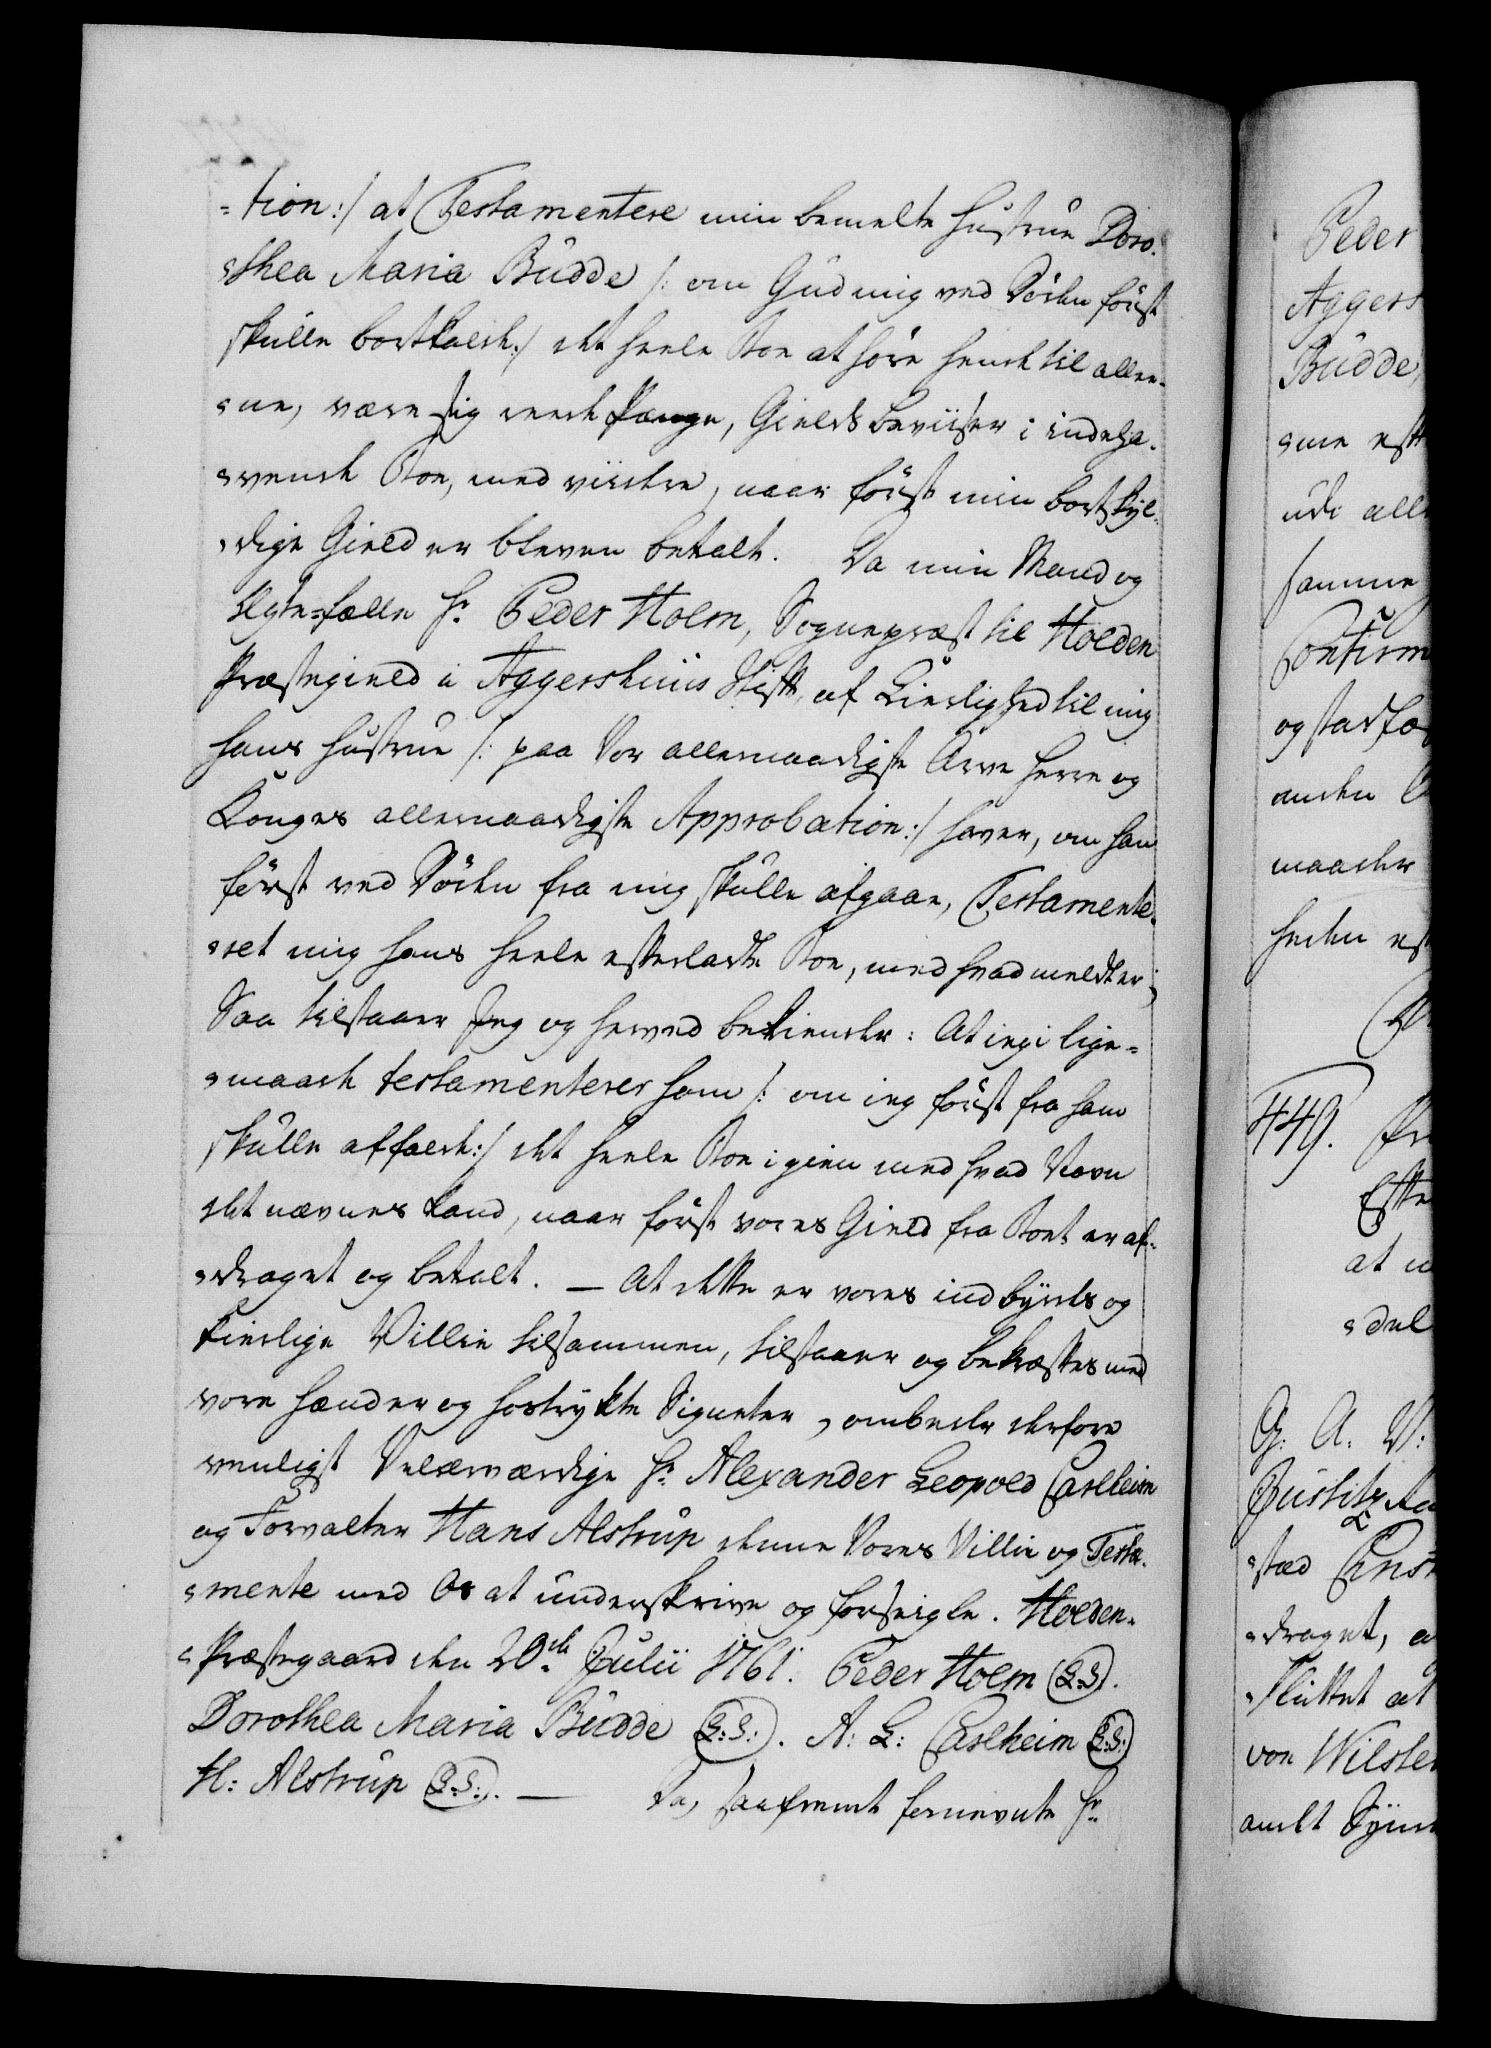 =tion:/ at Testamentere min bemelte Hustrue Doro-
=thea Maria Budde /: om Gud mig ved Döden först
skulle bortkalde:/ det heele Boe at höre hende til alle-
=ne, være sig reede Penge, Gields beviiser i indeha-
=vende Boe, med viidere, naar först min bortskyl-
=dige Gield er bleven betalt. Da min Mand og
Ægte-fælle Hr. Peder Holm, Sognepræst til Holden
Præstegield i Aggershuus Stift, af Kierlighed til mig
hans Hustrue /: paa Vor allernaadigste Arve Herre og
Konges allernaadigste Approbation:/ haver, om han
först ved Döden fra mig skulle afgaae, Testamente-
=ret mig hans heele efterladte Boe, med hvad meldt er;
Saa tilstaaer Jeg og herved bekiender: At jeg i lige-
=maade testamenterer ham /: om jeg först fra ham
skulle affalde:/ det heele Boe igien med hvad Navn
det nævnes kand, naar först vores Gield fra Boet er af-
=draget og betalt. — At dette er vores indbyrdes og
kierlige Villie tilsammen, tilstaaer og bekræftes med
vore Hænder og hostrykte Signeter, ombede derfore
venligst Velærværdige Hr. Alexander Leopold Carlheim
og Forvalter Hans Alstrup denne Vores Villie og Testa-
=mente med Os at underskrive og forseigle. Holden-
=Præstegaard den 20de Julii 1761. Peder Holm (L.S.).
Dorothea Maria Budde (L:S:). A: L: Carlheim (L:S:)
H: Alstrup (L.S.). — Da, saafremt fornevnte Hr.
Peder
Aggers
Budde,
=me eft
udi all
samme
Confirm
og stadfæ
anden
maader
heden
449. Fr
Efte
at
=del
G: A: V:
Justitz Ra
=sted
=draget, a
=fluttet at
von Wilster
andet